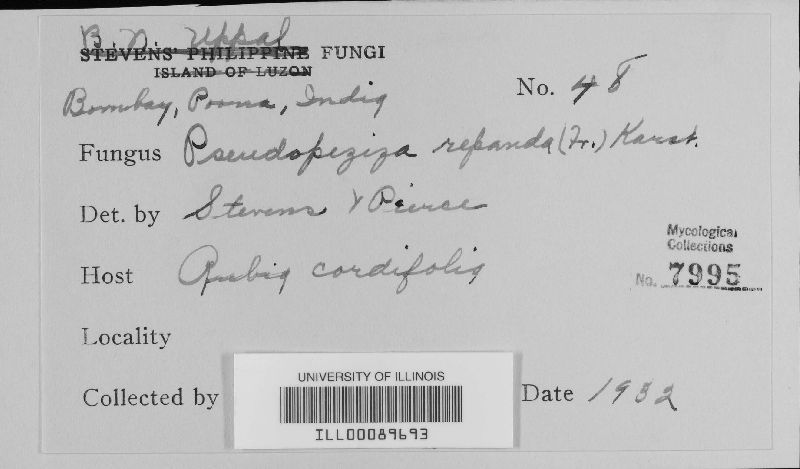 B. N. Uppal
STEVENS' PHILIPPINE FUNGI
ISLAND OF LUZON
No. 48
Bombay, Poona, India
Fungus Pseudopeziza repanda (Fr.) Karst.
Det. by Stevens & Pierce
Host Rubia cordifolia
Mycological
Collections
No. 7995
Locality
Collected by
Date 1932
UNIVERSITY OF ILLINOIS
ILL00089693